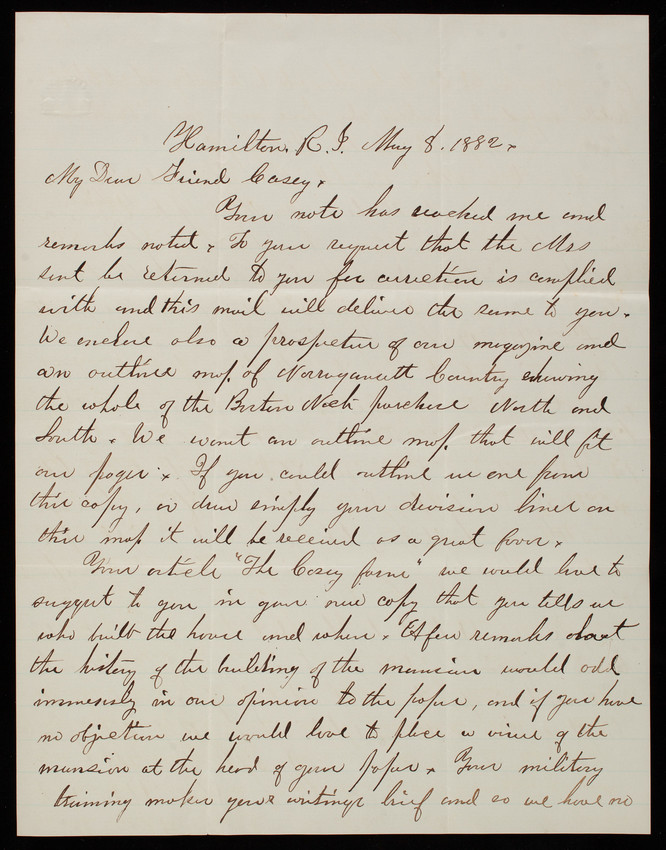 Hamilton, R. I. May 8. 1882.
My Dear Friend Casey.
Your note has reached me and
remarks noted. To your request that the Mss
sent be returned to you for correction is complied
with and this mail will deliver the same to you.
We enclose also a prospectus of our magazine and
an outline map of Narragansett Country showing
the whole of the Boston Neck purchase North and
South. We want an outline map that will fit
our pages. If you could outline us one from
this copy, or draw simply your division lines on
this map it will be received as a great favor.
Your article "The Casey farm" we would like to
suggest to you in your new copy that you tell us
who built the house and when. A few remarks about
the history of the building of the mansion would add
immensely in our opinion to the paper, and if you have
no objection we would love to place a view of the
mansion at the head of your paper. Your military
training makes your writings brief and so we have no